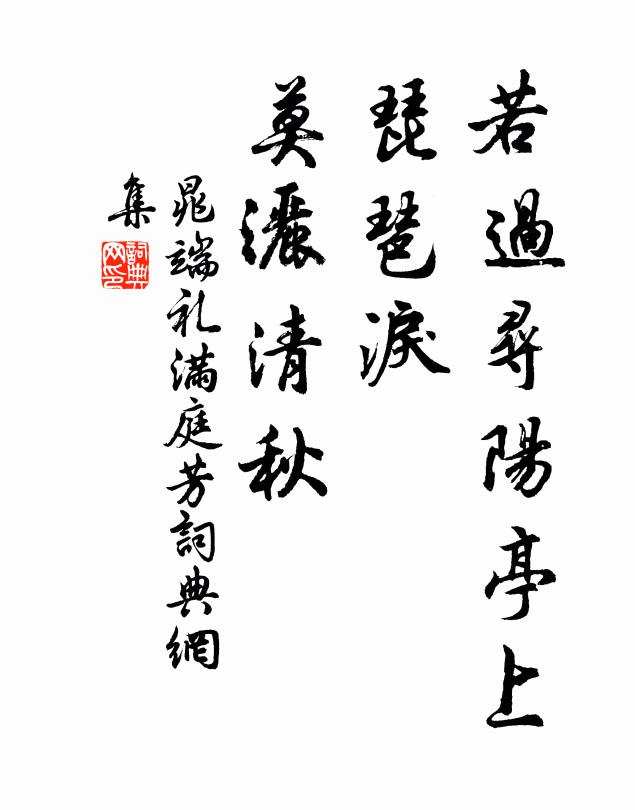 若過尋陽亭上
琵琶淚
莫灑清秋
晁端礼滿庭芳詞典網
集
詞典
网印